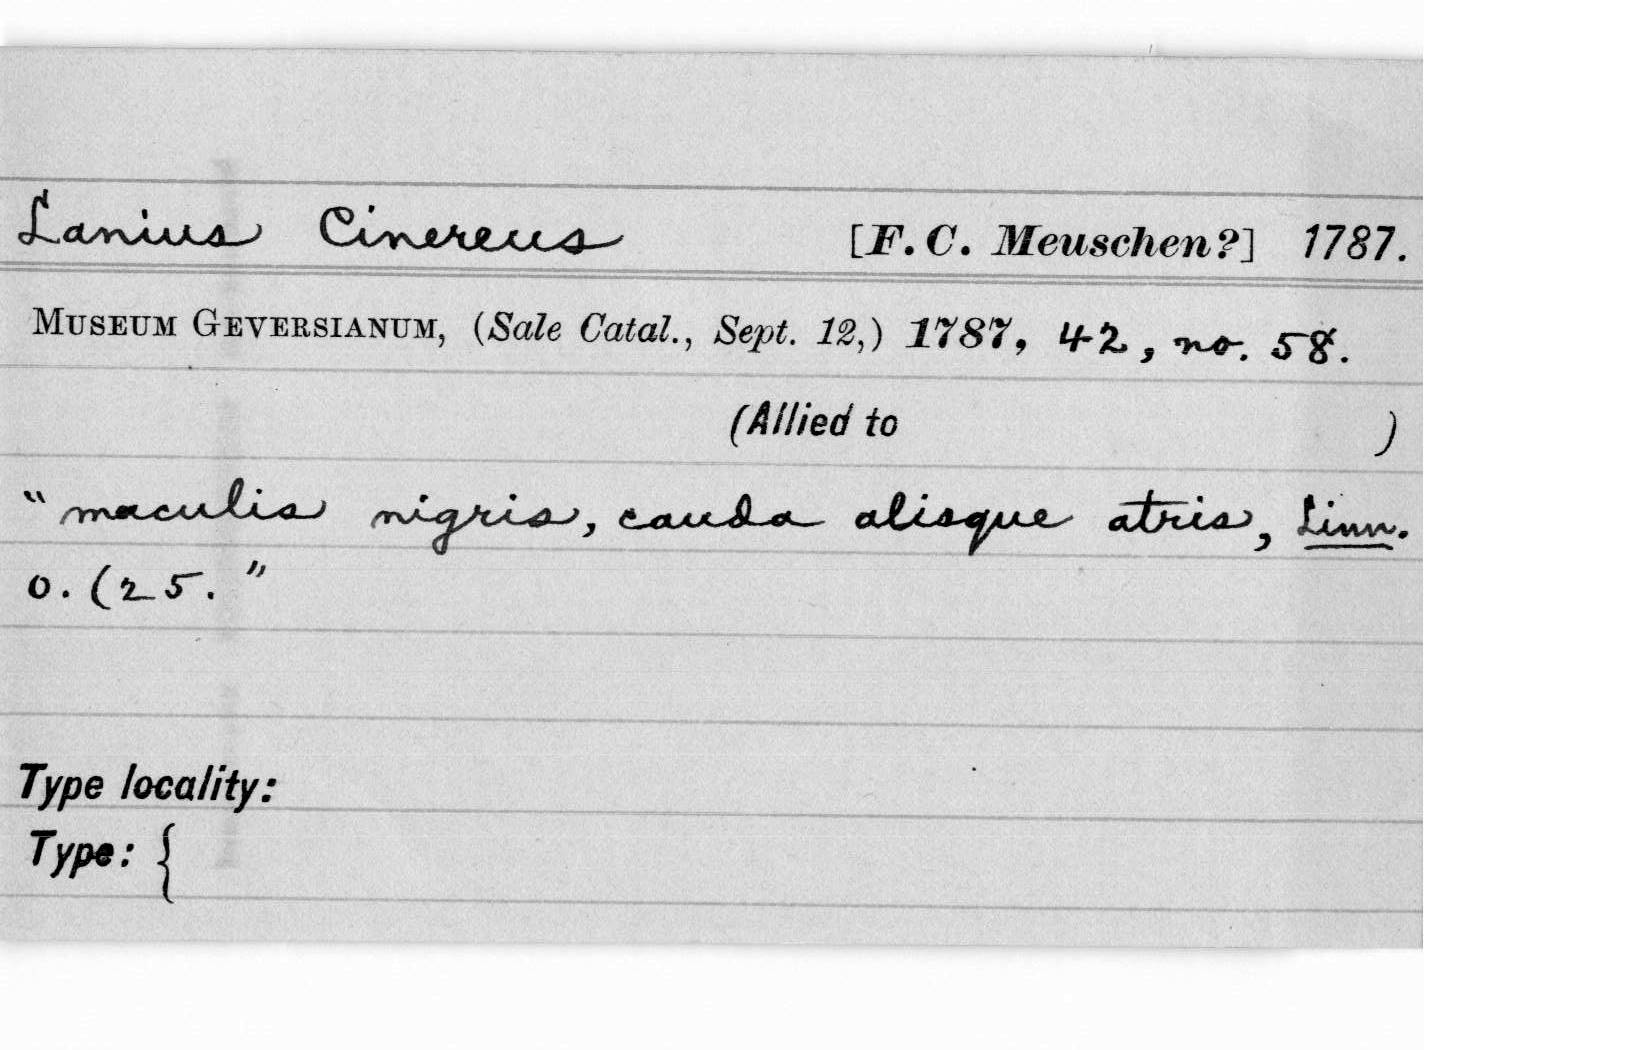 Lanius Cinereus [F. C. Meuschen?] 1787.
MUSEUM GEVERSIANUM, (Sale Catal., Sept. 12,) 1787, 42, no. 58.
(Allied to )
"maculis nigris, cauda alisque atris, Linn.
o. (25."
Type locality:
Type: {